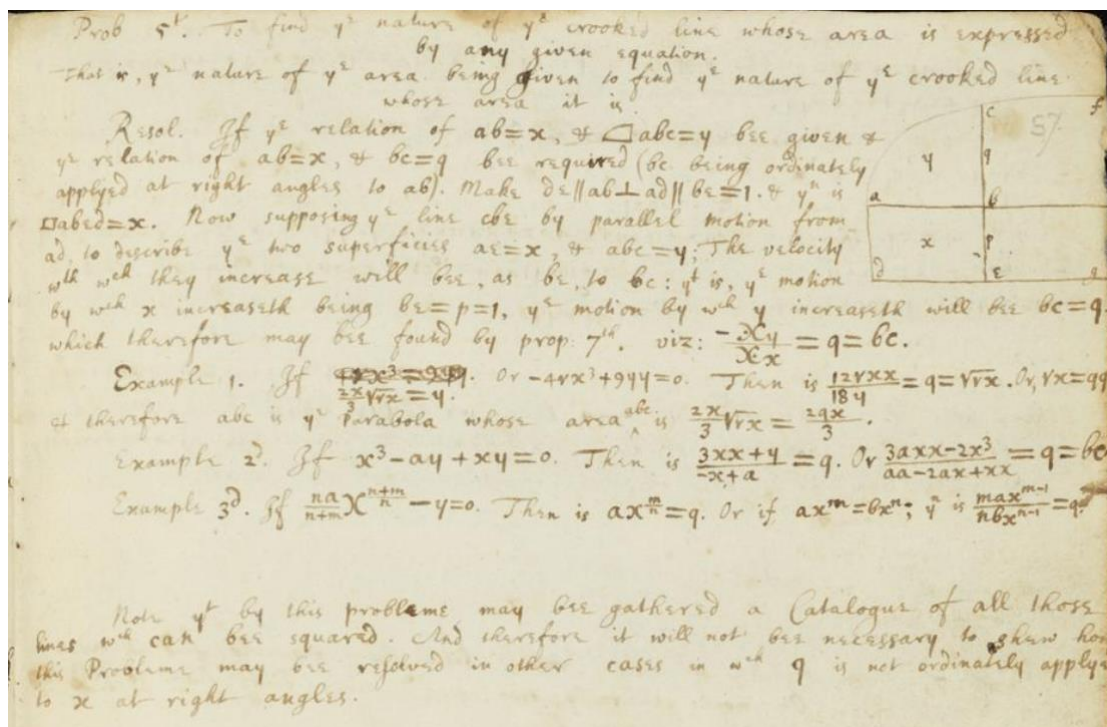 Prob 5t. To find ye nature of ye crooked line whose area is expressed
by any given equation.
That is, ye nature of ye area being given to find ye nature of ye crooked line
whose area it is
57
Resol. If ye relation of ab=x, & △abc=y bee given &
ye relation of ab=x, & bc=q bee required (bc being ordinately
applyed at right angles to ab). Make de∥ab⊥ad∥be=1. & yn is
□abed=x. Now supposing ye line cbe by parallel motion from
ad, to describe ye two superficies ae=x, & abc=y; The velocity
wth wch they increase will bee, as be, to bc: yt is, ye motion
by wch x increaseth being be=p=1, ye motion by wch y increaseth will bee bc=q.
which therefore may bee found by prop: 7th. viz: -Xy/Xx = q = bc.
Example 1. If 2x/3 √rx = y. Or -4rx³+9yy=0. Then is 12rxx/18y = q = √rx. Or, rx=qq
& therefore abc is ye Parabola whose area abc is 2x/3 √rx = 2qx/3.
Example 2d. If x³-ay+xy=0. Then is 3xx+y/-x+a = q. Or 3axx-2x³/aa-2ax+xx = q = bc
Example 3d. If na/n+m x^(n+m/n) - y=0. Then is ax^(m/n) = q. Or if ax^m=bx^n; yn is max^(m-1)/nbx^(n-1) = q
Note yt by this probleme may bee gathered a Catalogue of all those
lines wch can bee squared. And therefore it will not bee necessary to shew how
this Probleme may bee resolved in other cases in wch q is not ordinately applyed
to x at right angles.
c
f
y
q
a
b
x
p
d
e